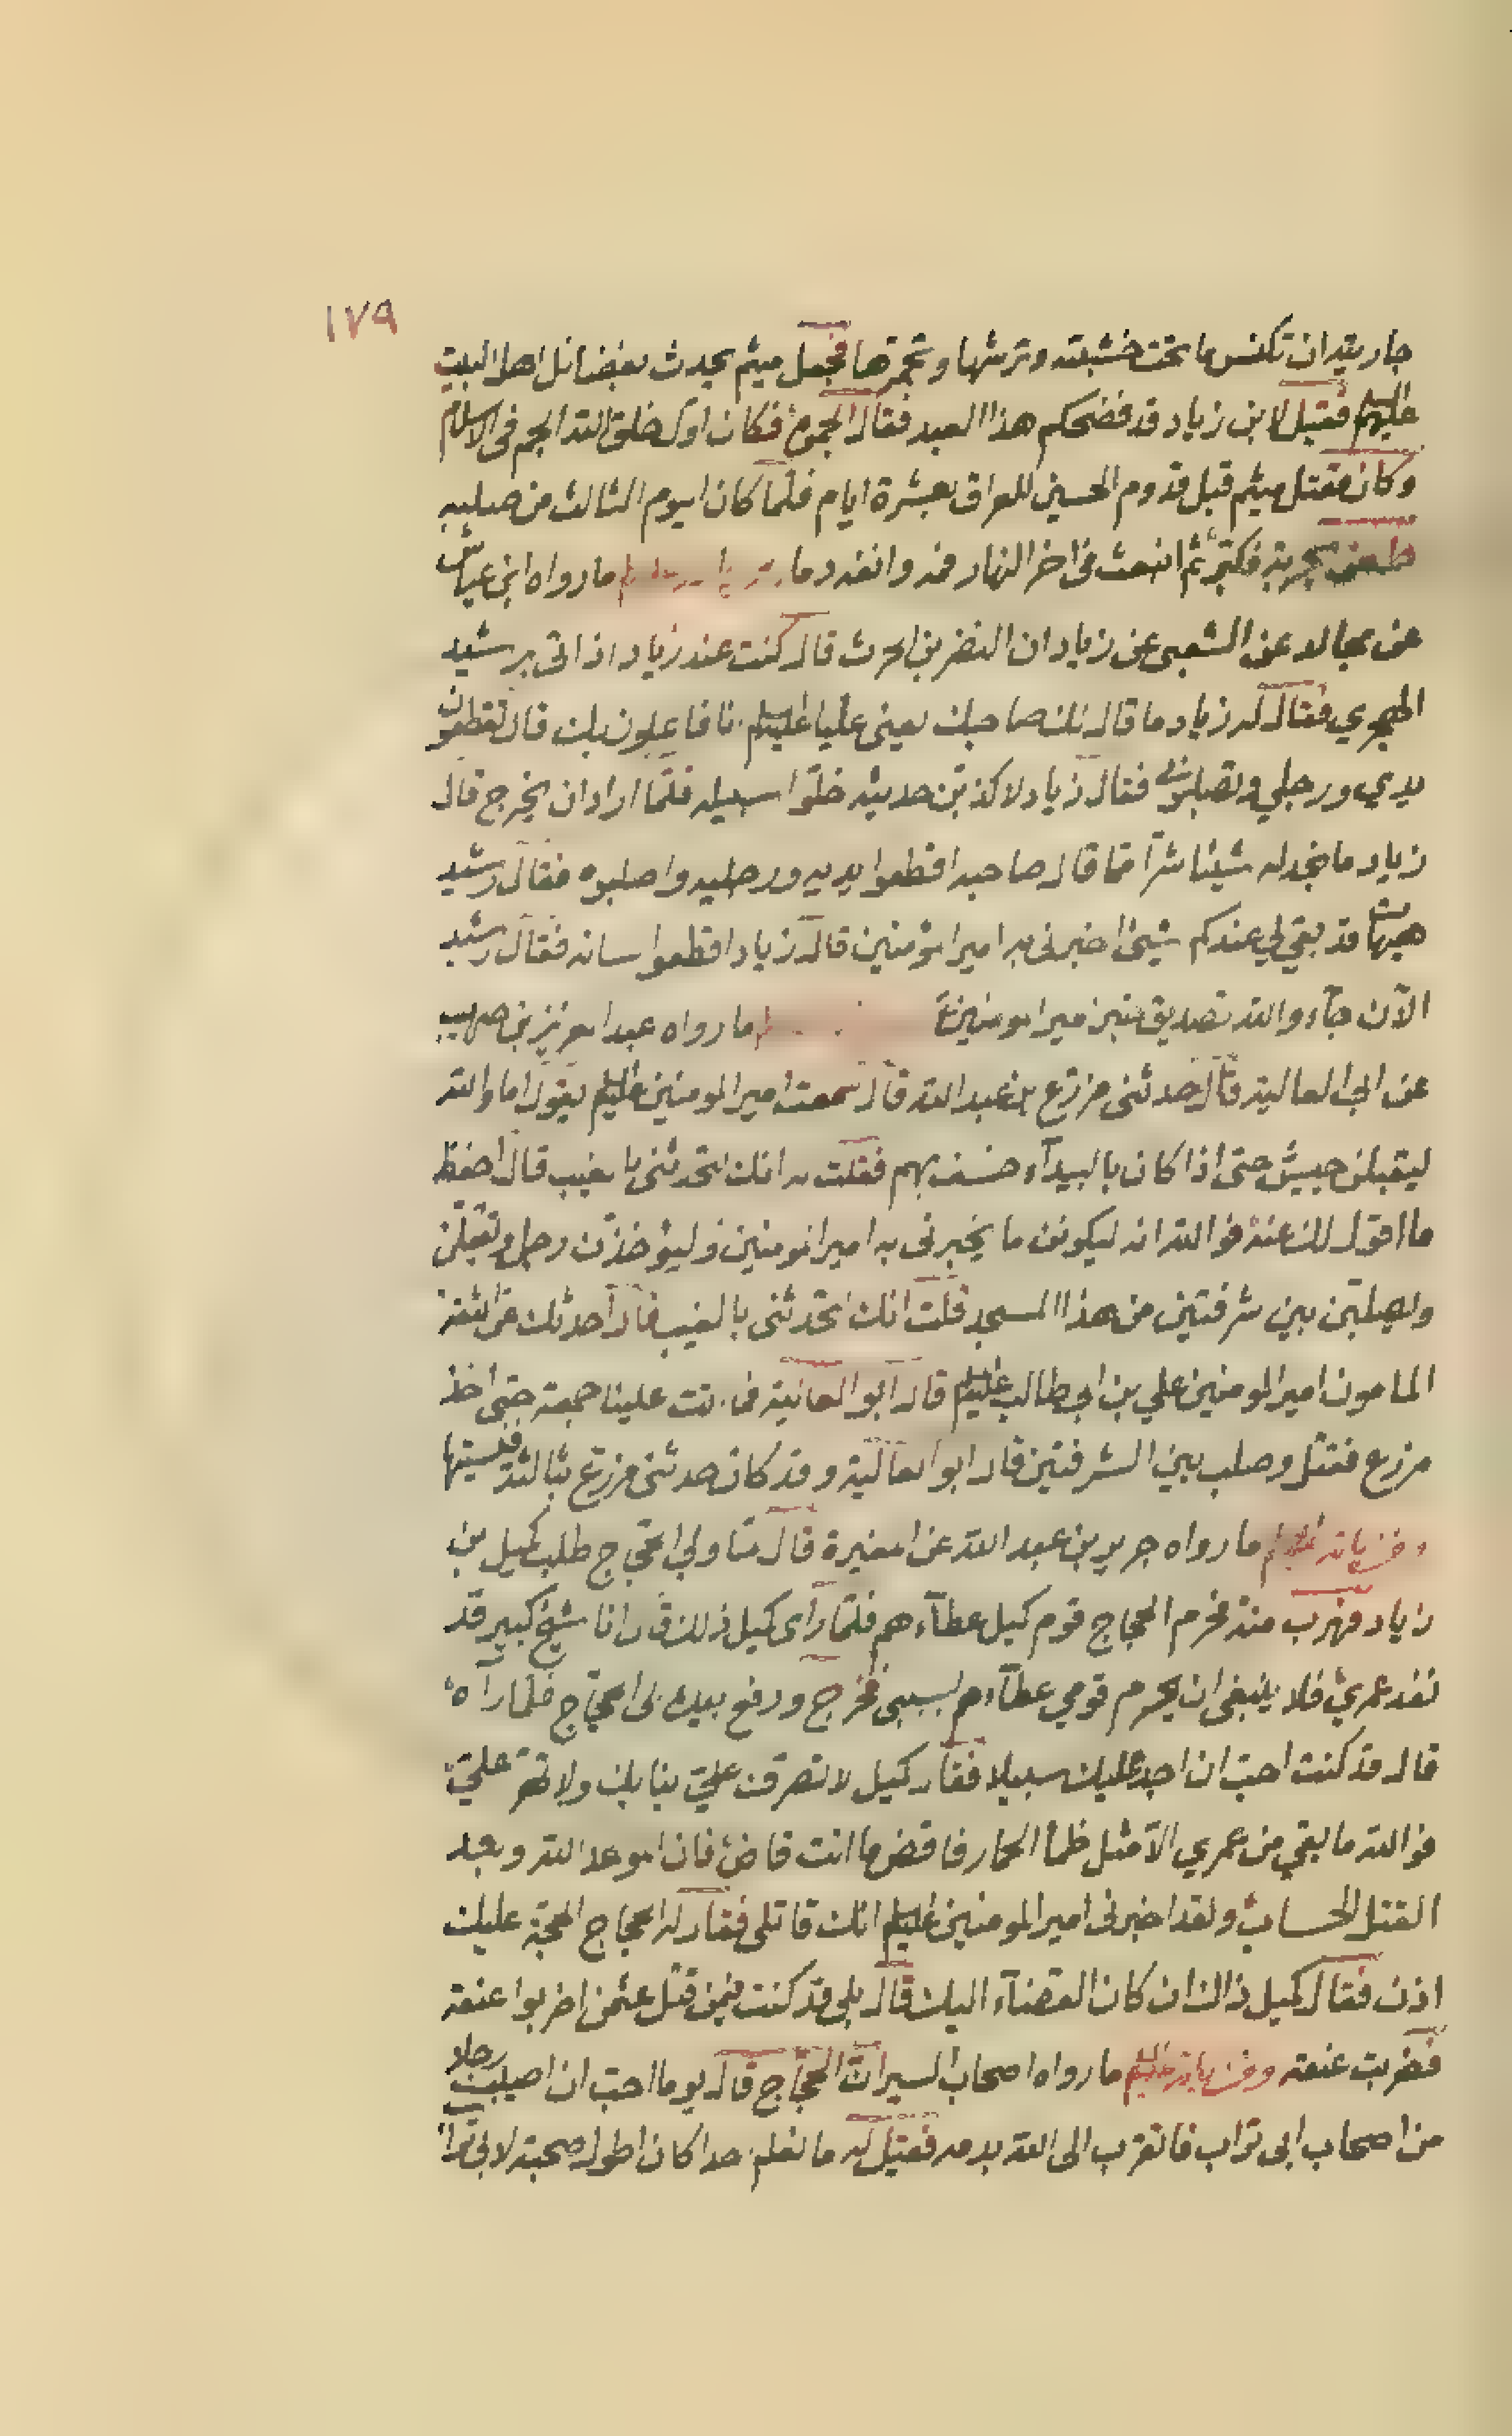 ١٧٩
جاريته ان تكنس ما تحت خشبته وترشها وتجمرها فجعل ميثم يحدث بفضائل اهل البيت
عليهم فقيل لابن زياد قد فضحكم هذا العبد فقال الجموه فكان اول خلق الله الجم فى الاسلام
وكان مقتل ميثم قبل قدوم الحسين للعراق بعشرة ايام فلما كان اليوم الثالث من صلبه
طعن بحربة فكبر ثم انبعث فى اخر النهار فمه وانفه دما ما رواه ابن عياش
عن مجالد عن الشعبى عن زياد ابن النضر بن الحرث قال كنت عند زياد اذ اتى برشيد
الهجري فقال له زياد ما قال لك صاحبك يعنى عليا عليه السلم انا فاعلون بك قال تقطعون
يدي ورجلي وتصلبونى فقال زياد لاكذبن حديثه خلوا سبيله فلما اراد ان يخرج قال
زياد ما نجد له شيئا شرا مما قال صاحبه اقطعوا يديه ورجليه واصلبوه فقال رشيد
هيهات قد بقي لي عندكم شيئ اخبرنى به امير المؤمنين قال زياد اقطعوا لسانه فقال رشيد
الآن جآء والله تصديق خبر امير المومنين ما رواه عبد العزيز بن صهيب
عن ابى العالية قال حدثنى مزرع بن عبد الله قال سمعت امير المومنين عليه السلم يقول اما والله
ليقبلن جيش حتى اذا كان بالبيدآء خسف بهم فقلت له انك لتحدثنى بالغيب قال احفظ
ما اقول لك عنه فوالله انه ليكونن ما يخبرنى به امير المومنين وليؤخذن رجل وليقتلن
وليصلبن بين شرفتين من هذا المسجد فقلت انك لتحدثنى بالغيب قال احدثك عن الثقة
المامون امير المومنين علي بن ابى طالب عليه السلم قال ابو العالية فما اتت علينا جمعة حتى اخذ
مزرع فقتل وصلب بين الشرفتين قال ابو العالية وقد كان حدثنى مزرع بثالثة فنسيتها
ومن اياته عليه السلم ما رواه جرير بن عبد الله عن المغيرة قال لما ولي الحجاج طلب كميل بن
زياد فهرب منه فحرم الحجاج قوم كميل عطآءهم فلما رأى كميل ذلك قال انا شيخ كبير قد
نفد عمري فلا ينبغى ان يحرم قومي عطآءهم بسببى فخرج ودفع بيده الى الحجاج فلما رآه
قال قد كنت احب ان اجد عليك سبيلا فقال كميل لا تصرفن علي بنابك ولا تهر علي
فوالله ما بقي من عمري الا مثل ظمأ الحمار فاقض ما انت قاض فان الموعد الله وبعد
القتل الحساب ولقد اخبرنى امير المومنين عليه السلم انك قاتلى فقال له الحجاج الحجة عليك
اذن فقال كميل ذاك ان كان القضآء اليك قال بلى قد كنت فيمن قتل عثمن اضربوا عنقه
فضربت عنقه ومن اياته عليه السلم ما رواه اصحاب السير ان الحجاج قال يوما احب ان اصيب رجلا
من اصحاب ابى تراب فاتقرب الى الله بدمه فقيل له ما نعلم احدا كان اطول صحبة لابى تراب